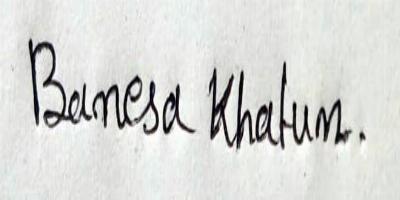 Banesa Khatun.